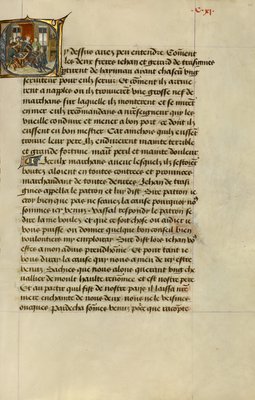 C. xi.
y dessus auez peu entendre. Comēt
les deux freres iehan et gerard de trasignes
partirent de haynau ayant chascun vng
seruiteur pour eulx seruir. Et comēt ilz arriue
rent a naples ou ilz trouuerēt vne grosse nef de
marchans sur laquelle ilz monterent et se mirēt
en mer eulx recōmandans a nr̄eseigneur que les
vueille conduire et mener a bon port ce dont ilz
eussent eu bon mestier. Car ainchois quilz eussēt
trouue leur pere, ilz endurerent mainte terrible
et grande fortune maul peril et mainte douleur
Iceulx marchans auecq lesquelz ilz sestoiēt
boutez aloient en toutes contrees et prouinces
marchandant de toutes denrees. Jehan de trasi
gnes appella le patron et luy dist. Sire patron ie
croy bien que pas ne scauez la cause pourquoy no9
sommes icy venus. Vassal respondy le patron se
dire la me voulez et que ce soit chose ou aidier ie
vous puisse ou donner quelque bon conseil bien
voulontiers my employray. Sire dist iehan vo9
estre amon aduis preudhōme. Et pour tant ie
vous diray la cause qui nous a meu de icy estre
venus. Sachiez que nous alons querant vng che
uallier de moult haulte renōmee. et est nostre pere
Et au partir quil fist de nostre pays il laissa nr̄e
mere enchainte de nous deux. nous ne le veismes
oncques. Par decha sommes venus pour que racopte